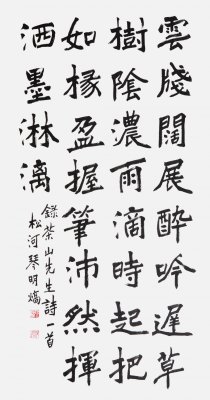 雲牋闊展醉吟遲草
樹陰濃雨滴時起把
如椽盈握筆沛然揮
洒墨淋漓
錄茶山先生詩一首
松河琴明